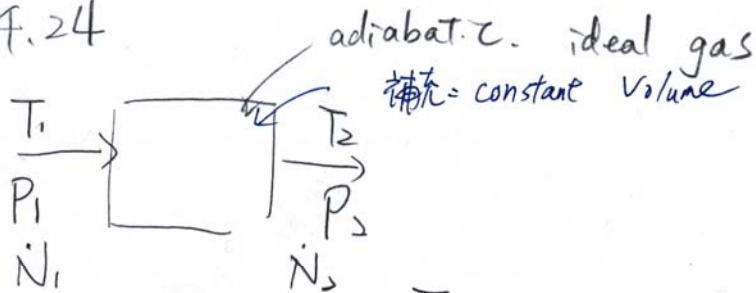 4.24
adiabatic. ideal gas
補充= constant Volume
T₁ T₂
P₁ P₂
Ṅ₁ Ṅ₂